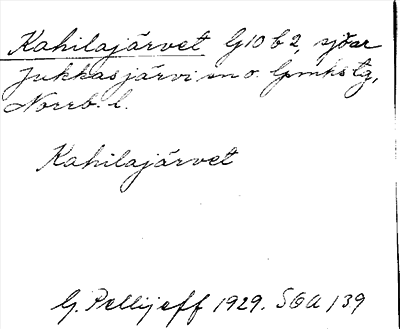 Kahilajärvet G10 b 2, sjöar
Jukkasjärvi sn o. lpmhstg,
Norrb. l.
Kahilajärvet
G. Pellijeff 1929. SOA 139